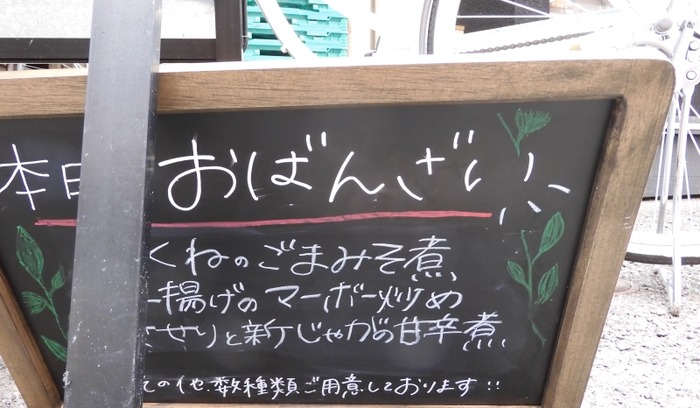 本日 おばんざい
くねのごまみそ煮
揚げのマーボー炒め
と新じゃがの甘辛煮
の他、数種類ご用意しております!!